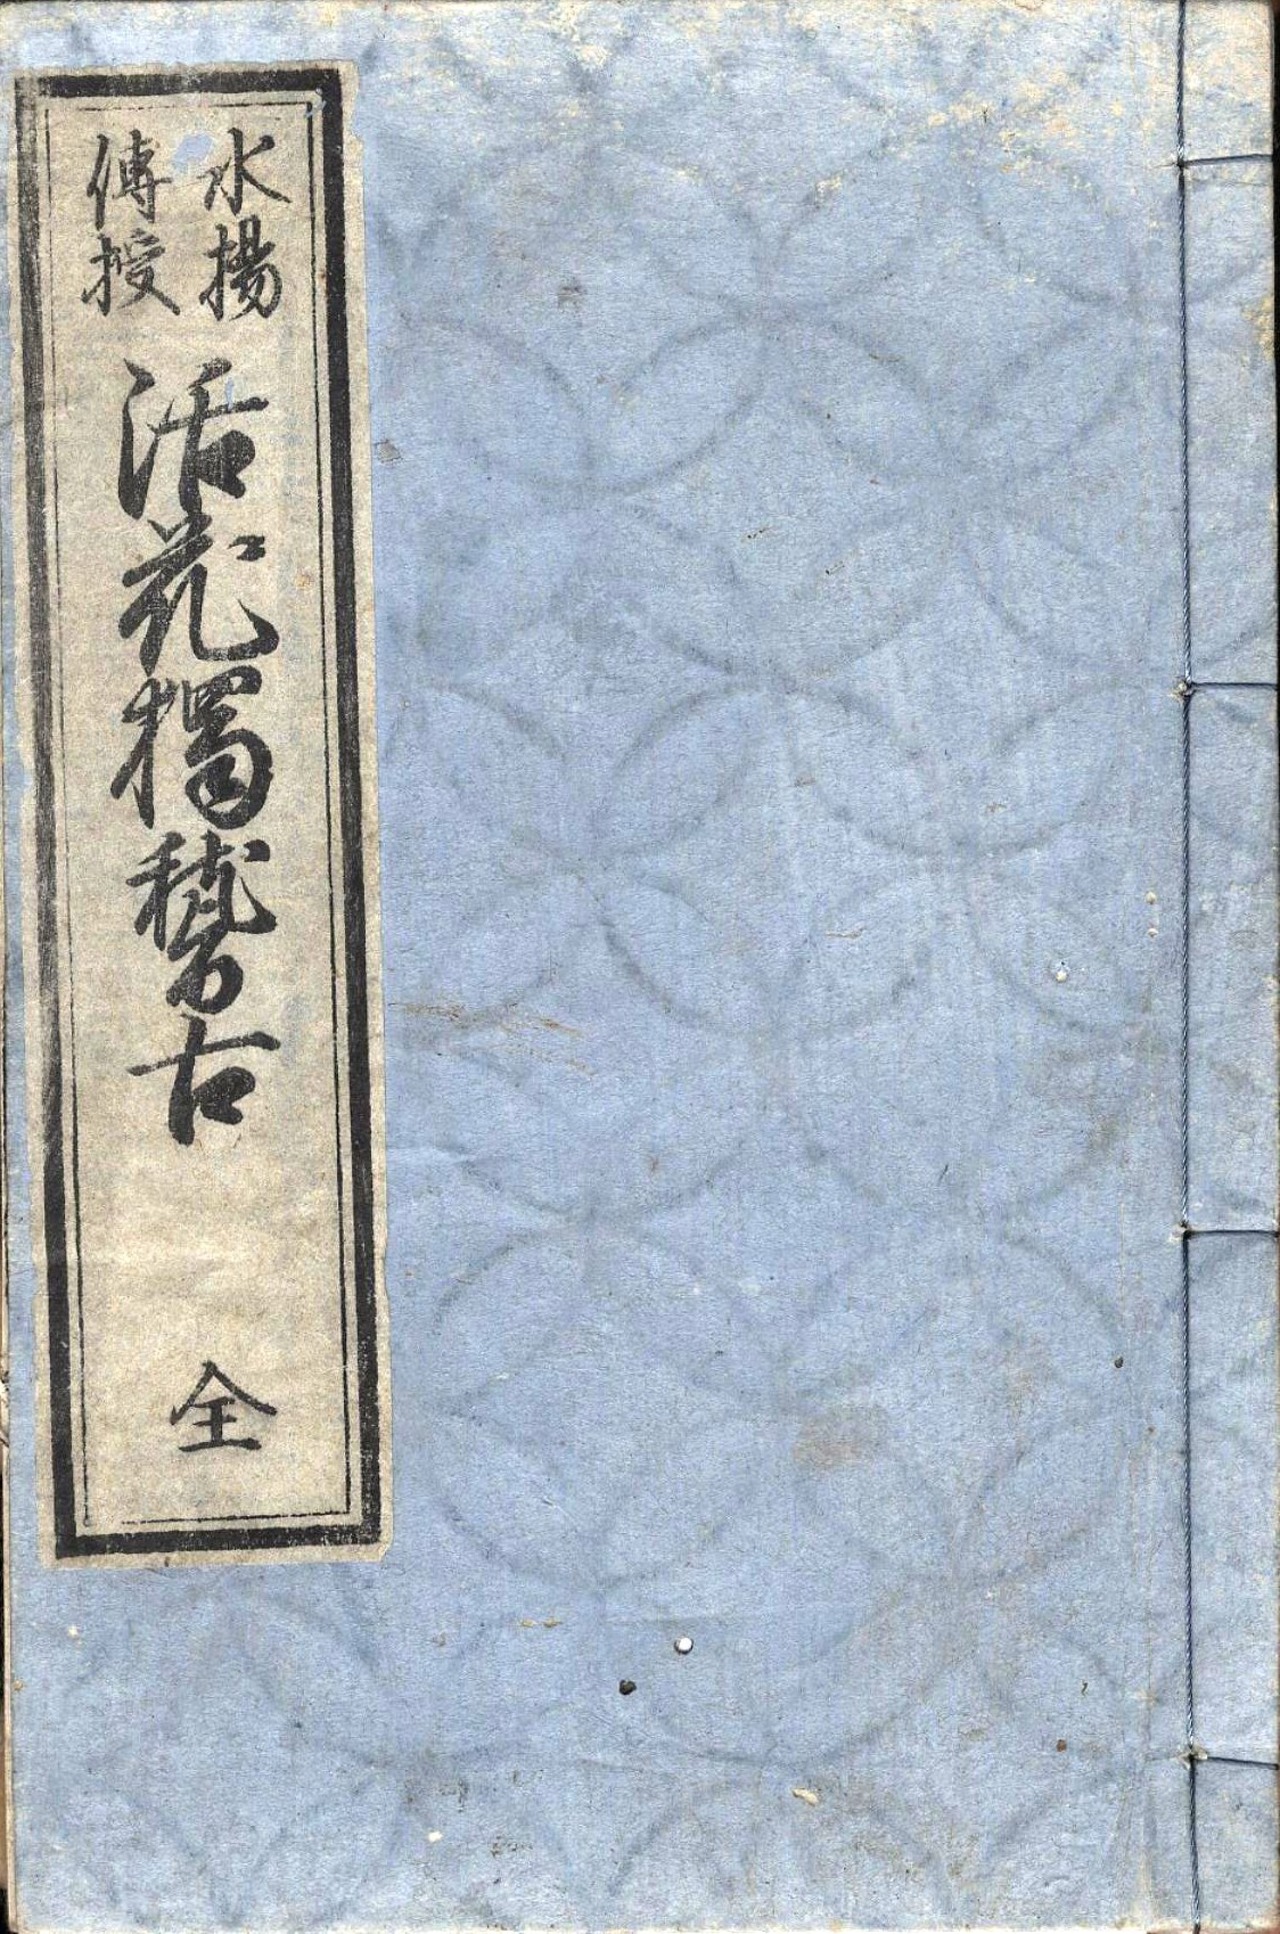 水揚
傳授
活花獨稽古
全